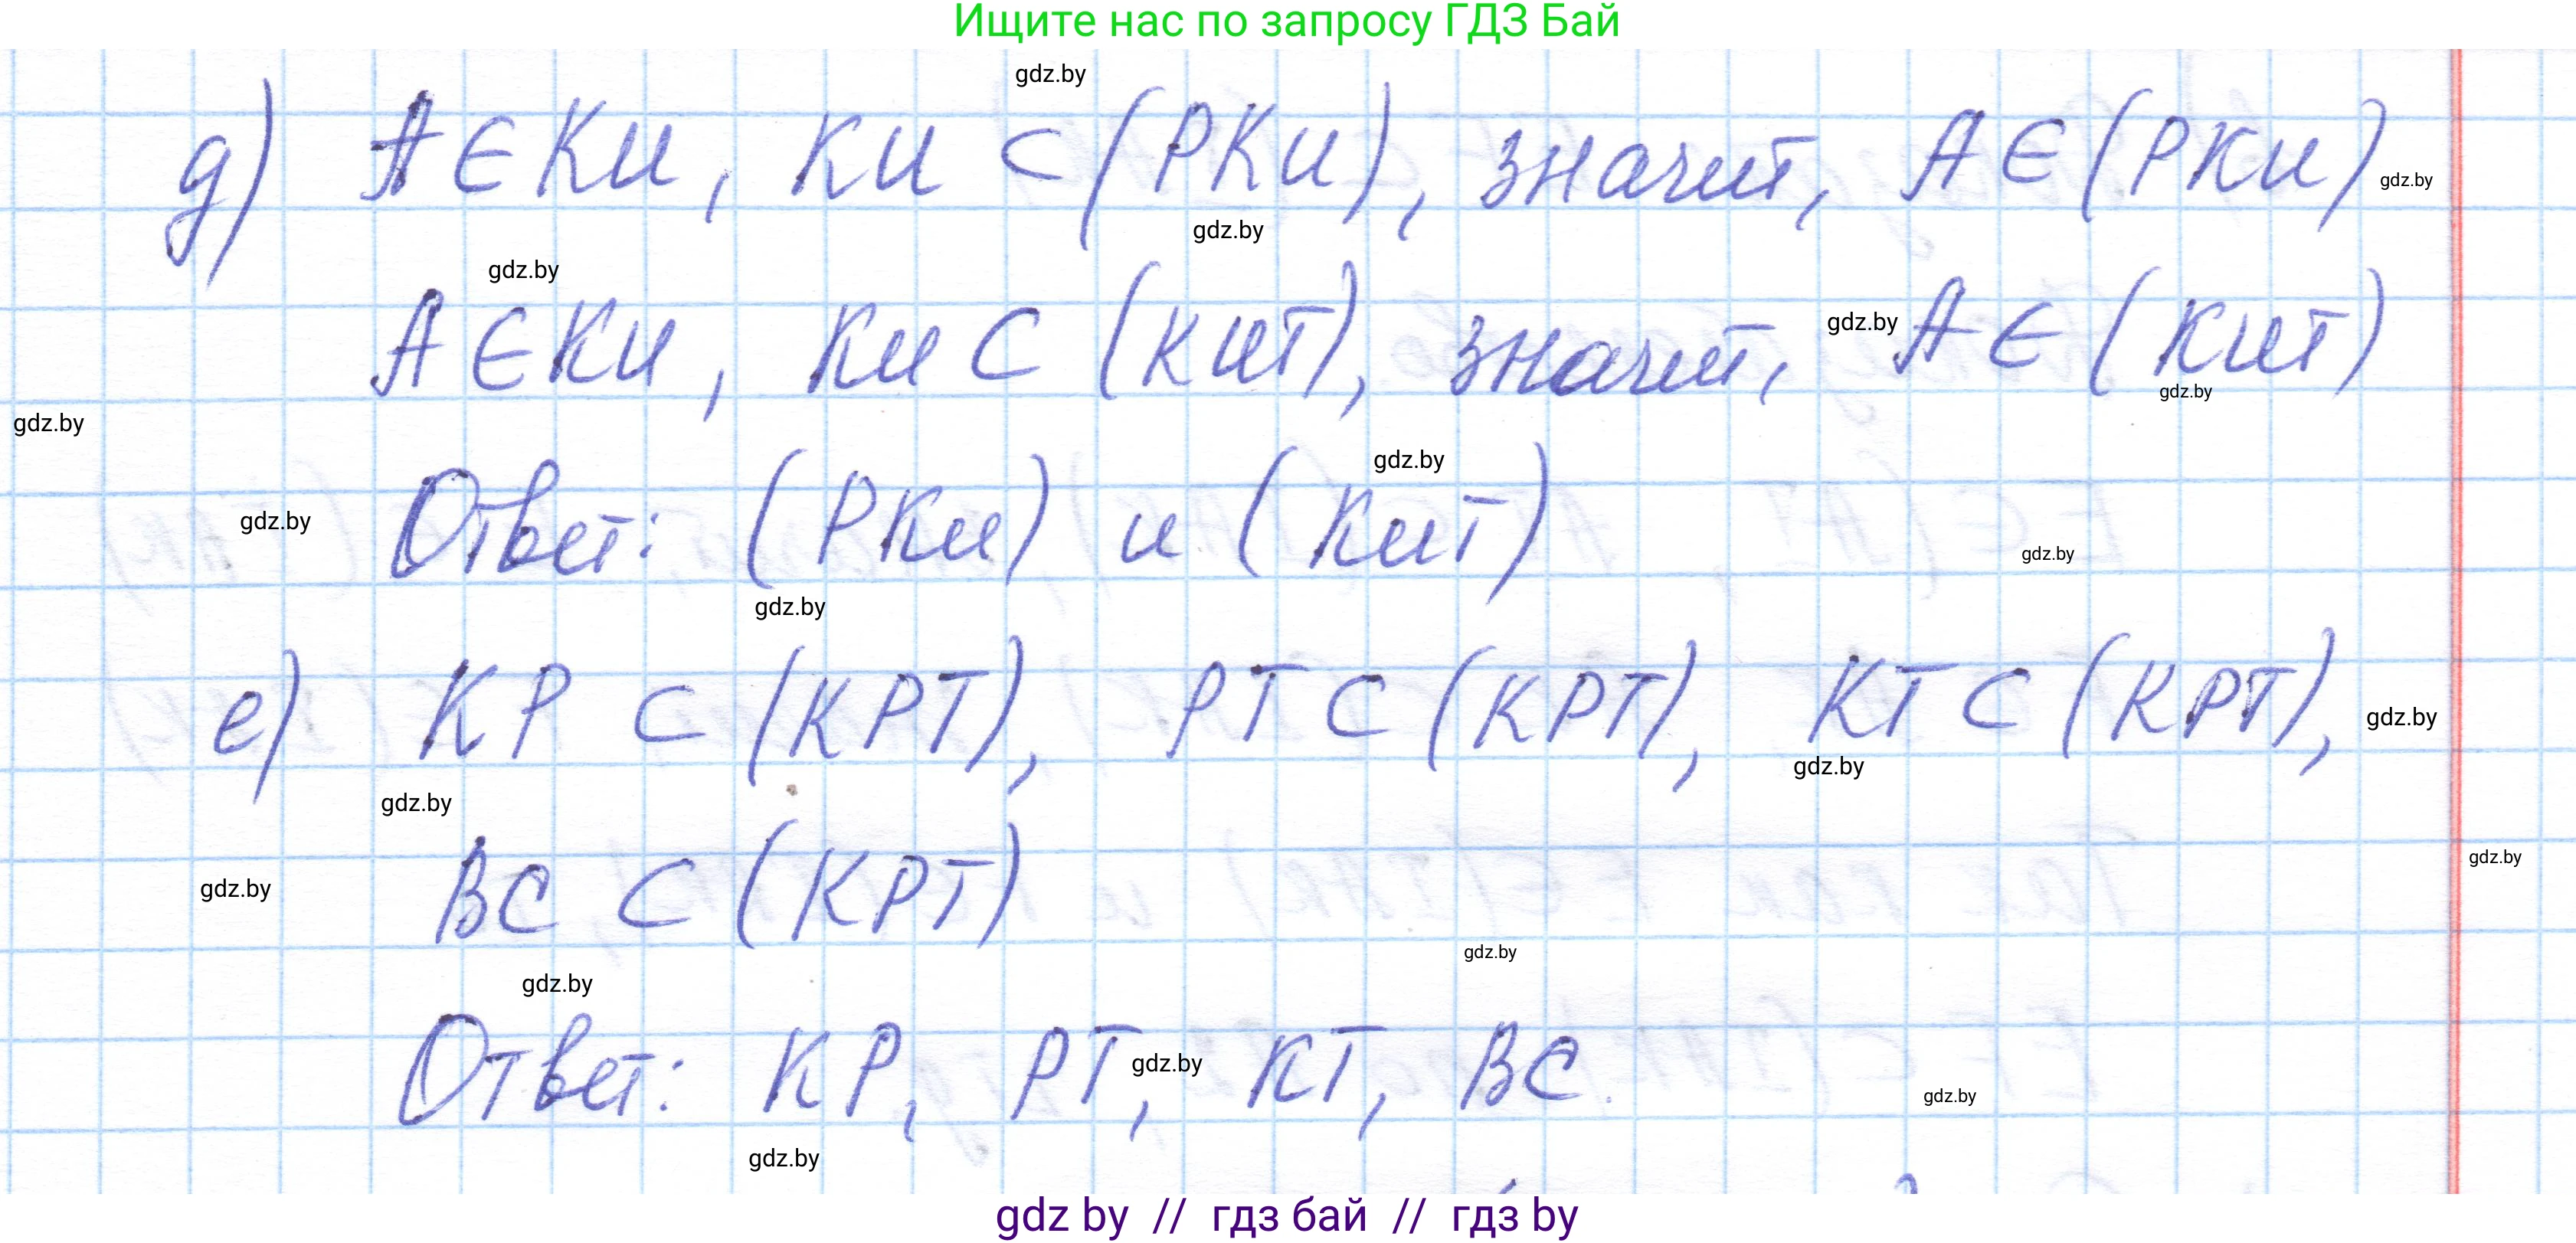 Ищите нас по запросу ГДЗ Бай
gdz.by
д) A ∈ КИ, КИ ⊂ (РКИ), значит, A ∈ (РКИ)
gdz.by
gdz.by
gdz.by
A ∈ КИ, КИ ⊂ (КИТ), значит, A ∈ (КИТ)
gdz.by
gdz.by
gdz.by
gdz.by
Ответ: (РКИ) и (КИТ)
gdz.by
gdz.by
gdz.by
е) KP ⊂ (KPT), PT ⊂ (KPT), KT ⊂ (KPT),
gdz.by
gdz.by
gdz.by
BC ⊂ (KPT)
gdz.by
gdz.by
gdz.by
gdz.by
Ответ: KP, PT, KT, BC.
gdz.by
gdz.by
gdz.by
gdz by // гдз бай // гдз by